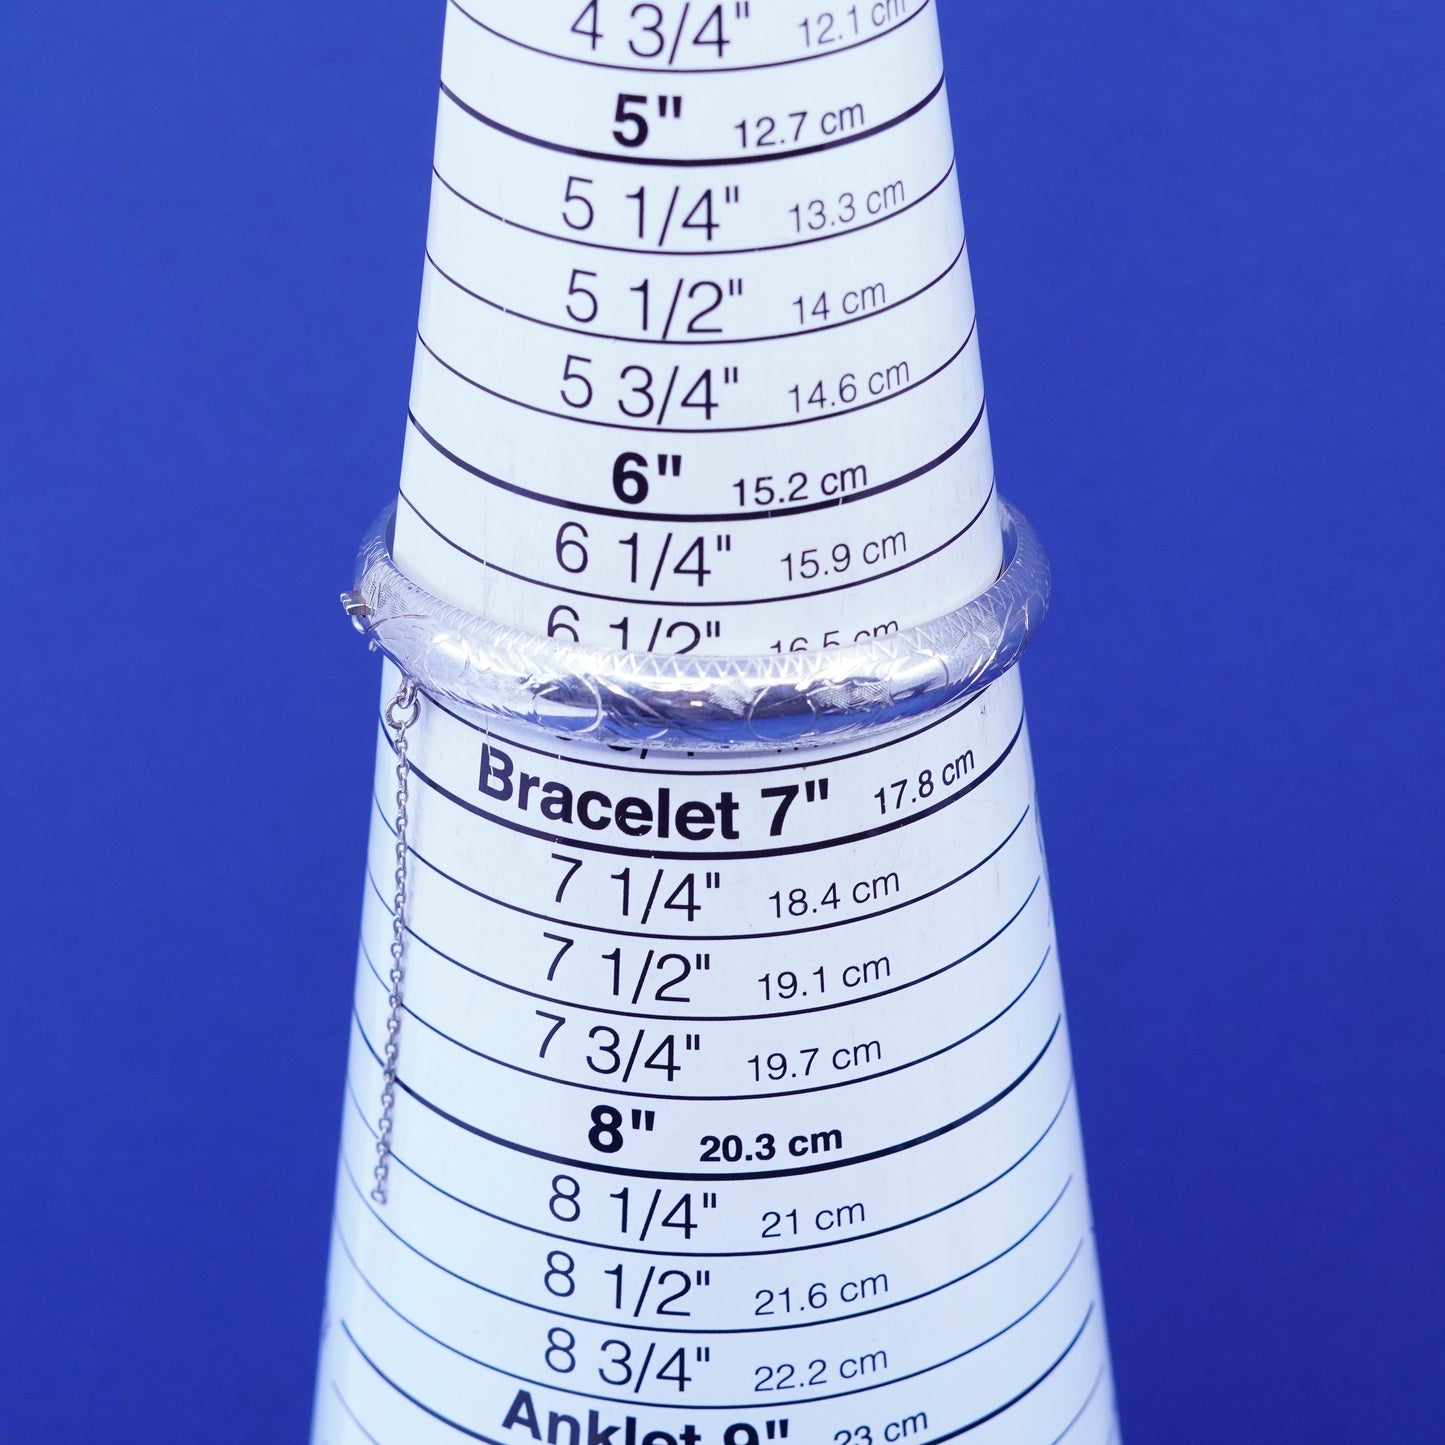 4 3/4" 12.1 cm
5" 12.7 cm
5 1/4" 13.3 cm
5 1/2" 14 cm
5 3/4" 14.6 cm
6" 15.2 cm
6 1/4" 15.9 cm
6 1/2" 16.5 cm
Bracelet 7" 17.8 cm
7 1/4" 18.4 cm
7 1/2" 19.1 cm
7 3/4" 19.7 cm
8" 20.3 cm
8 1/4" 21 cm
8 1/2" 21.6 cm
8 3/4" 22.2 cm
Anklet 9" 23 cm